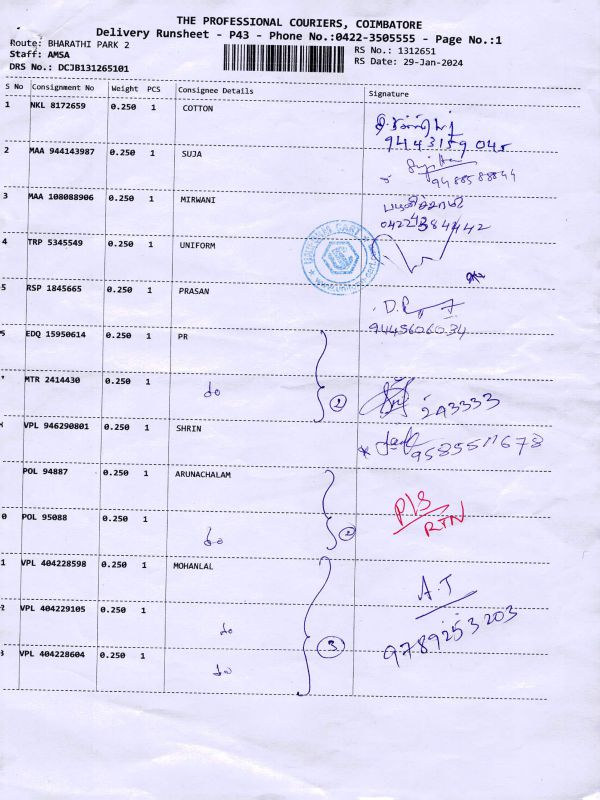 THE PROFESSIONAL COURIERS, COIMBATORE
Delivery Runsheet - P43 - Phone No.:0422-3505555 - Page No.:1
Route: BHARATHI PARK 2
RS No.: 1312651
Staff: AMSA
RS Date: 29-Jan-2024
DRS No.: DCJB131265101
S No Consignment No Weight PCS Consignee Details Signature
1 NKL 8172659 0.250 1 COTTON
9443159045
2 MAA 944143987 0.250 1 SUJA
9488588844
3 MAA 108088906 0.250 1 MIRWANI
பழனிச்சாமி
4 TRP 5345549 0.250 1 UNIFORM
5 RSP 1845665 0.250 1 PRASAN
9445606034
EDQ 15950614 0.250 1 PR
MTR 2414430 0.250 1 do 2 243333
VPL 946290801 0.250 1 SHRIN
9585511678
POL 94887 0.250 1 ARUNACHALAM
P/S
RTN
0 POL 95088 0.250 1 do 2
1 VPL 404228598 0.250 1 MOHANLAL
A.T
2 VPL 404229105 0.250 1 do
9789253203
3 VPL 404228604 0.250 1 do 3